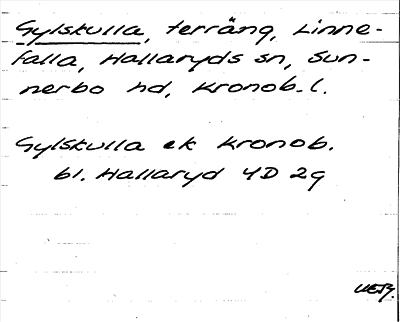 Gylskulla, terräng, Linne-
falla, Hallaryds sn, Sun-
nerbo hd, Kronob. l.
Gylskulla ek Kronob.
bl. Hallaryd 4D 2g